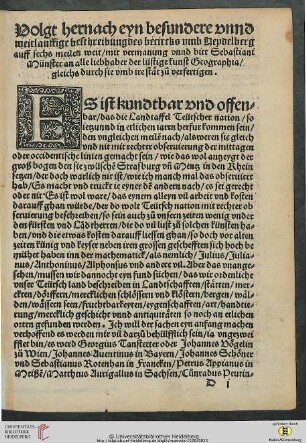 Volgt hernach eyn besundere vnnd
weitlauffige beschreibung des bezircks vmb Heydelberg
auff sechs meilen weit/ mit vermanung vnnd bitt Sebastiani
Münster an alle liebhaber der lüstige kunst Geographia/
gleichs durch sie vmb ire stät zu verfertigen.
ES ist kundtbar vnd offen-
bar/ das die Landtaffel Teütscher nation/ so
yn vngleichen
vnd nit mit rechter obseruierung der mittagen
oder occidentische linien gemacht sein/ wie das wol anzeygt der
groß bogen den sie zwüsche Straßburg vn Mentz in den Rhein
setzen/ der doch
hab/ Es macht vnd truckt ie eyner dem andern nach/ es sei gerecht
oder nit/ Es ist wol ware/ das eynem allein vil arbeit vnd kosten
darauff ghan würde/ der do wolt Teütsch nation mit rechter ob-
seruierung beschreiben/ so sein auch zu vnsern zeiten wenig vnder
den fürsten vnd Lädtherren/ die do vil lust zu solchen künsten ha-
ben/ vnd die etwas kosten darauff liessen ghan/ so doch vor alten
zeiten künig vnd keyser neben iren grossen gescheften sich hoch be
mühet haben inn der mathematick/ als nemlich/ Julius/ Iulia-
nus/ Anthonius/ Alphonsus vnd andere vil. Aber das vnange-
sehen/ müssen wir dannocht eyn fund süchen/ das wir ordenlich
vnser Teütsch land beschreiben in Landtschafften/ stätten/ mer-
ckten/ dörffern/ mercklichen schlössern vnd klöstern/ bergen/ wäl-
den/ wässern seen/ fruchtbarkeyten/ art/ handtie-
rung/ mercklich geschicht vnnd antiquiteten so noch an etlichen
orten gefunden werden. Ich will der sachen eyn anfang machen
verhoffend es werden mir vil darzu behülfflich sein/
flet hier bin/ es werd Georgius Tanstetter oder Johannes Vögelin
zu Wien/ Johannes Auentinus in Bayern/ Johannes Schöner
vnd Sebastianus Rotenhan in Francken/ Petrus Appianus in
Meiße/ Mattheus Aurigallus in Sachsen/ Cunradus Peutin-
D j
UNIVERSITÄTS-
BIBLIOTHEK
HEIDELBERG
© Universitätsbibliothek Heidelberg